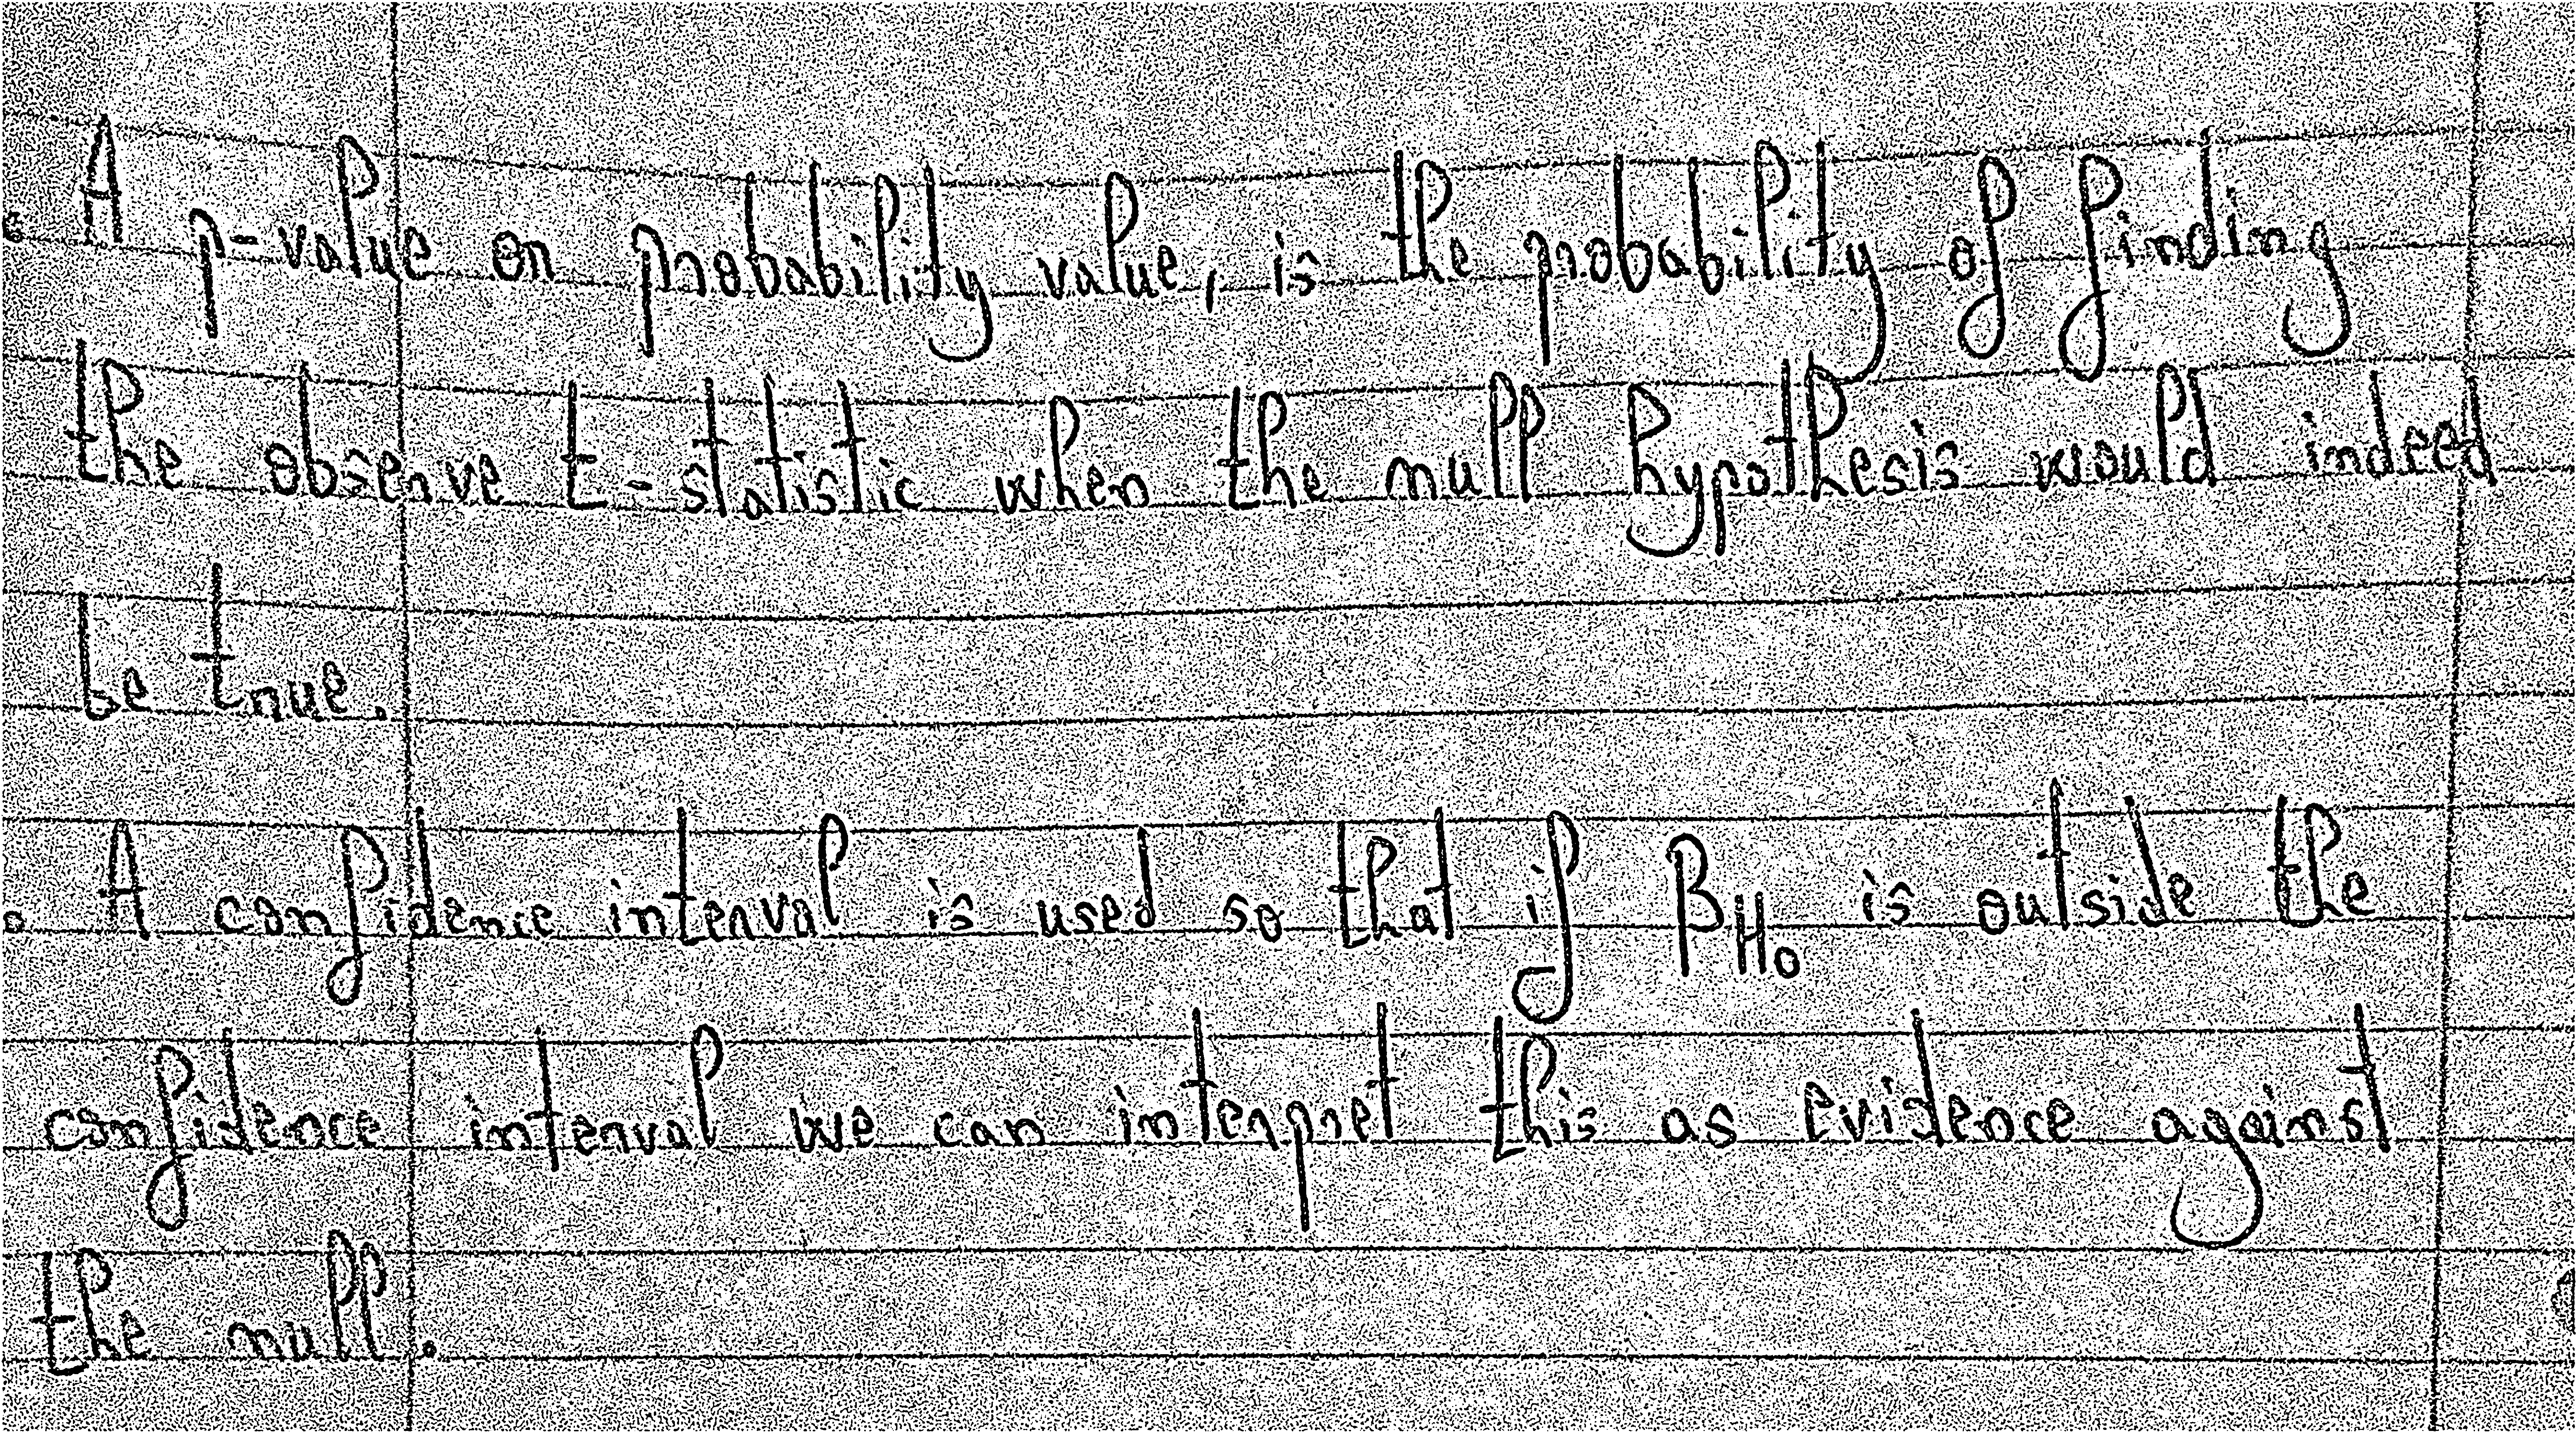 • A p-value or probability value, is the probability of finding
the observe t-statistic when the null hypothesis would indeed
be true.
• A confidence interval is used so that if β_H₀ is outside the
confidence interval we can interpret this as evidence against
the null.